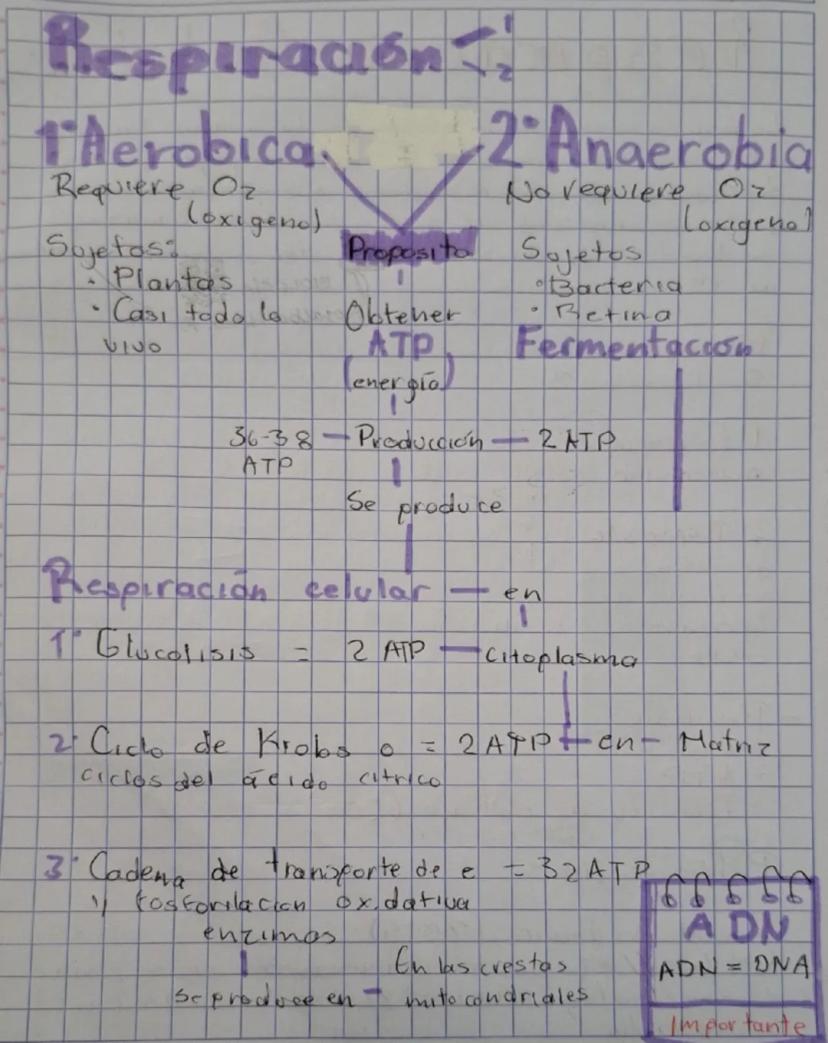 Respiración 1
2
1° Aerobica
2° Anaerobia
Requiere O2
(oxigeno)
Sujetos:
· Plantas
· Casi todo lo
vivo
Proposito
Obtener
ATP
(energía)
No requiere O2
(oxigeno)
Sujetos
· Bacteria
· Retina
Fermentacion
36-38 — Producción — 2 ATP
ATP
Se produce
Respiración celular — en
1° Glucolisis = 2 ATP — citoplasma
2° Ciclo de Krebs o = 2 ATP — en — Matriz
ciclos del ácido citrico
3° Cadena de transporte de e = 32 ATP
y fosforilacion oxidativa
enzimas
Se produce en — En las crestas
mitocondriales
ADN
ADN = DNA
Importante